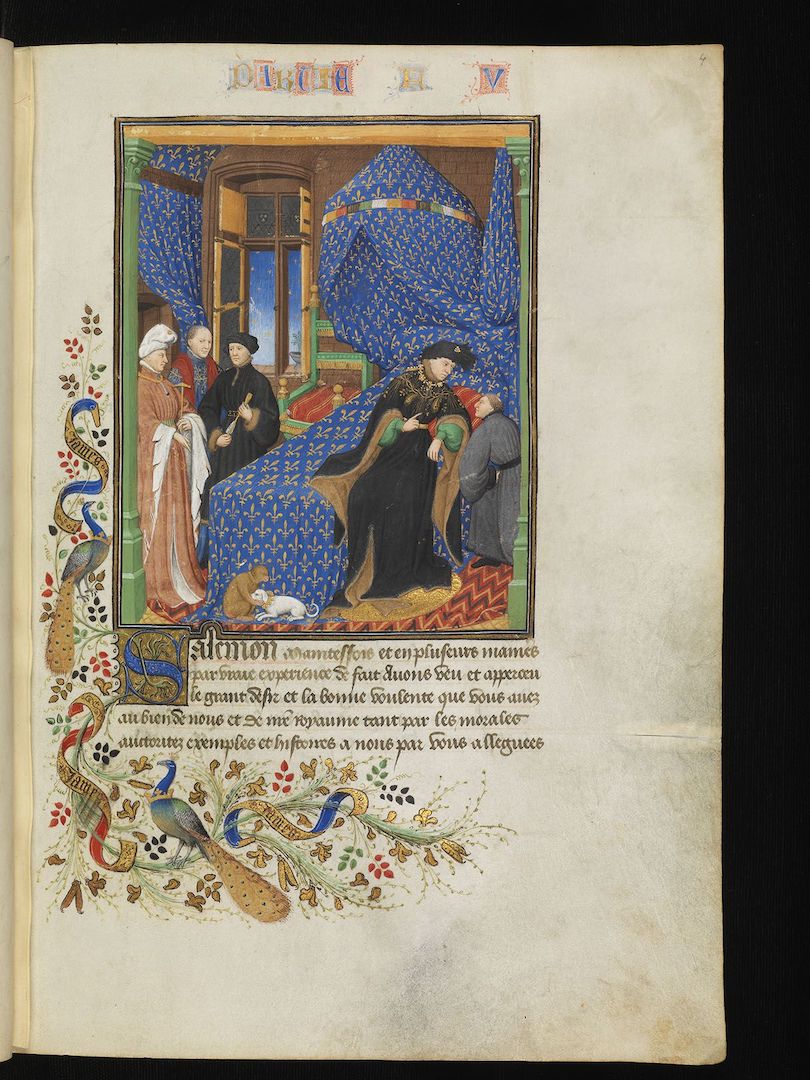 4
Salemon Maintesfois et en plusieurs manies
par vraie experience de fait Avons veu et apperceu
le grant desir et la bonne voulente que vous avez
au bien de nous et de nre royaume tant par les morales
auctoritez exemples et histoires a nous par vous alleguees
james
james
james